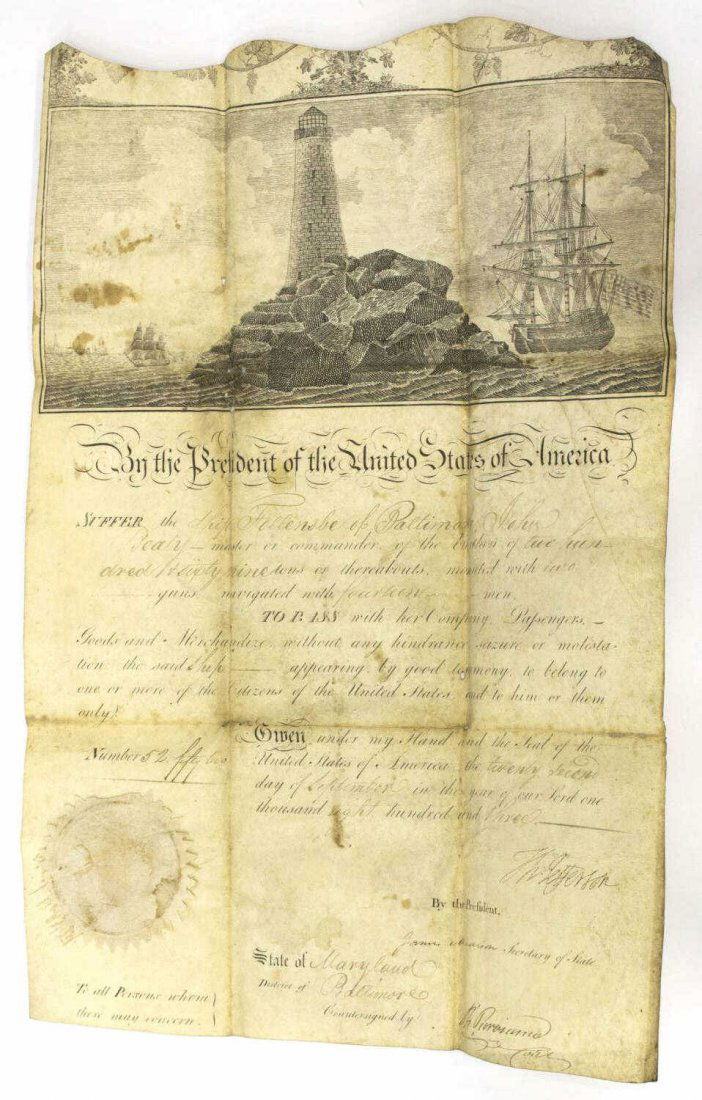 By the President of the United States of America
SUFFER the Ship of Baltimore John
master or commander, of the burthen of two hun-
dred & eighty nine tons or thereabouts, mounted with two
guns, navigated with fourteen men,
TO PASS with her Company, Passengers,
Goods and Merchandize, without any hindrance seizure or molesta-
tion the said Ship appearing by good testimony, to belong to
one or more of the Citizens of the United States and to him or them
only.
Number 52 fifty two
Given under my Hand and the Seal of the
United States of America, the twenty
day of September in the year of our Lord one
thousand eight hundred and three
Th Jefferson
By the President.
James Madison Secretary of State
State of Maryland
District of Baltimore
Countersigned by
To all Persons whom
these may concern.